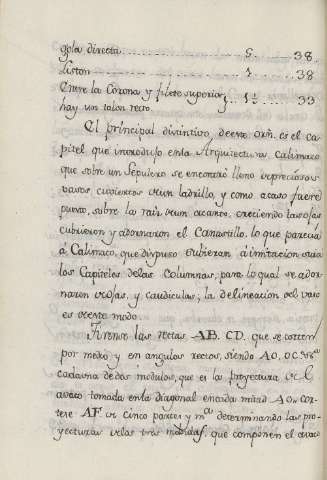 gola directa ........ 5 .... 38.
Liston ........ 1 .... 38
Entre la Corona y filete superior } .. 1½ .... 33
hay un talon recto.
El principal distintivo, de este orn. es el ca-
pitel, que introdujo en la Arquitectura Calimaco
que sobre un Sepulcro se encontró lleno de preciosos
vasos, cubierto de un ladrillo, y como acaso fuese
puesto, sobre la raiz de un acanto, creciendo las ojas
cubrieron y adornaron el Canastillo. lo que parecia
á Calimaco, que dispuso
los Capiteles de las Columnas, para lo qual se ador-
naron de ojas, y cauliculas; la delineacion del vaso
es de este modo
Tirense las rectas AB. CD. que se corten
por medio y en angulos rectos, siendo AO, OC
cada una de dos modulos, que es la proyectura de el
avaco tomada en la diagonal en cada mitad AO, cor-
tese AF de cinco partes y determinando las pro-
yecturas de las tres que componen el avaco